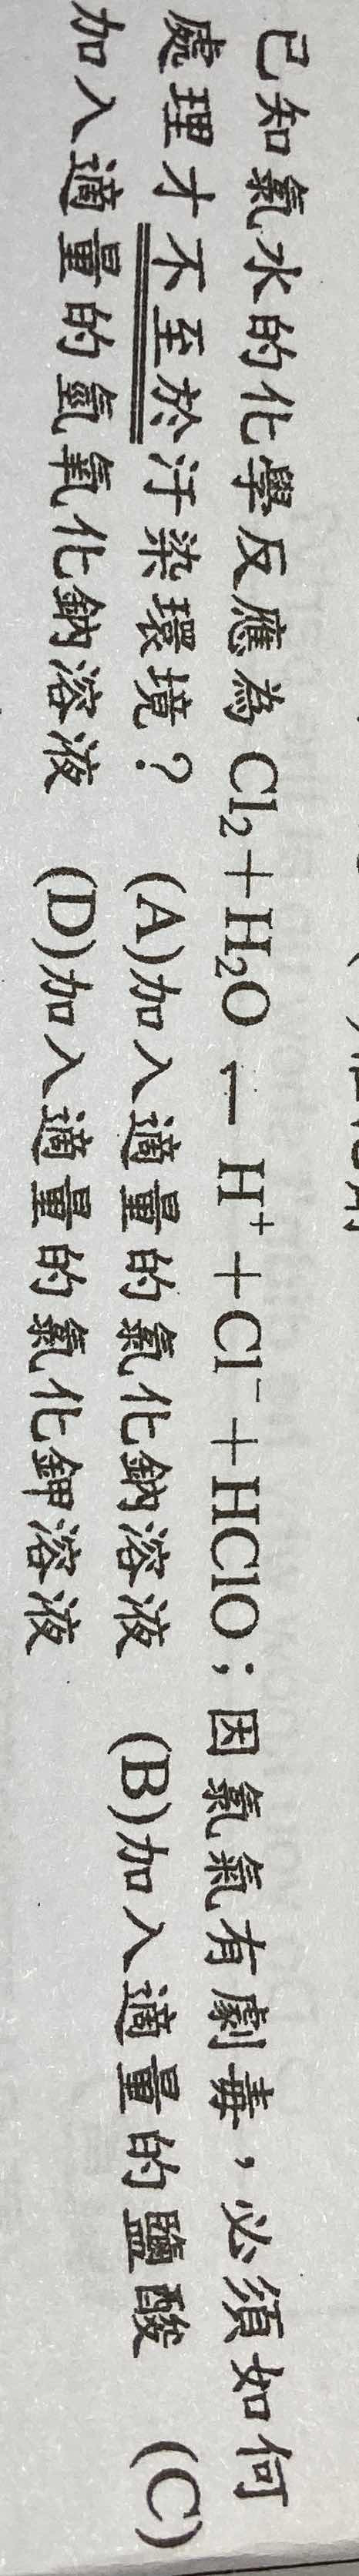 已知氯水的化學反應為 Cl₂+H₂O ⇌ H⁺+Cl⁻+HClO；因氯氣有劇毒，必須如何
處理才不至於汙染環境？ (A)加入適量的氯化鈉溶液 (B)加入適量的鹽酸 (C)
加入適量的氫氧化鈉溶液 (D)加入適量的氯化鉀溶液